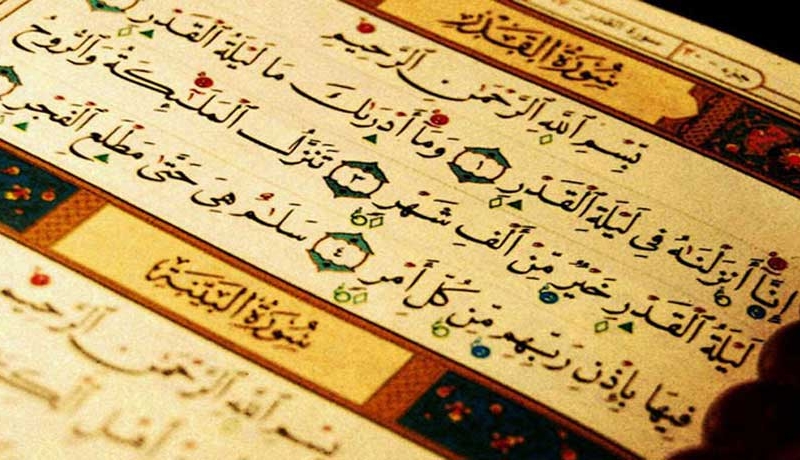 جزء ٣٠ سورة القدر
سُورَةُ القَدْرِ
بِسْمِ ٱللَّهِ ٱلرَّحْمَٰنِ ٱلرَّحِيمِ
إِنَّآ أَنزَلْنَٰهُ فِي لَيْلَةِ ٱلْقَدْرِ ١ وَمَآ أَدْرَىٰكَ مَا لَيْلَةُ ٱلْقَدْرِ
لَيْلَةُ ٱلْقَدْرِ خَيْرٌ مِّنْ أَلْفِ شَهْرٍ ٣ تَنَزَّلُ ٱلْمَلَٰٓئِكَةُ وَٱلرُّوحُ
فِيهَا بِإِذْنِ رَبِّهِم مِّن كُلِّ أَمْرٍ ٤ سَلَٰمٌ هِيَ حَتَّىٰ مَطْلَعِ ٱلْفَجْرِ
سُورَةُ البَيِّنَةِ
بِسْمِ ٱللَّهِ ٱلرَّحْمَٰنِ ٱلرَّحِيمِ